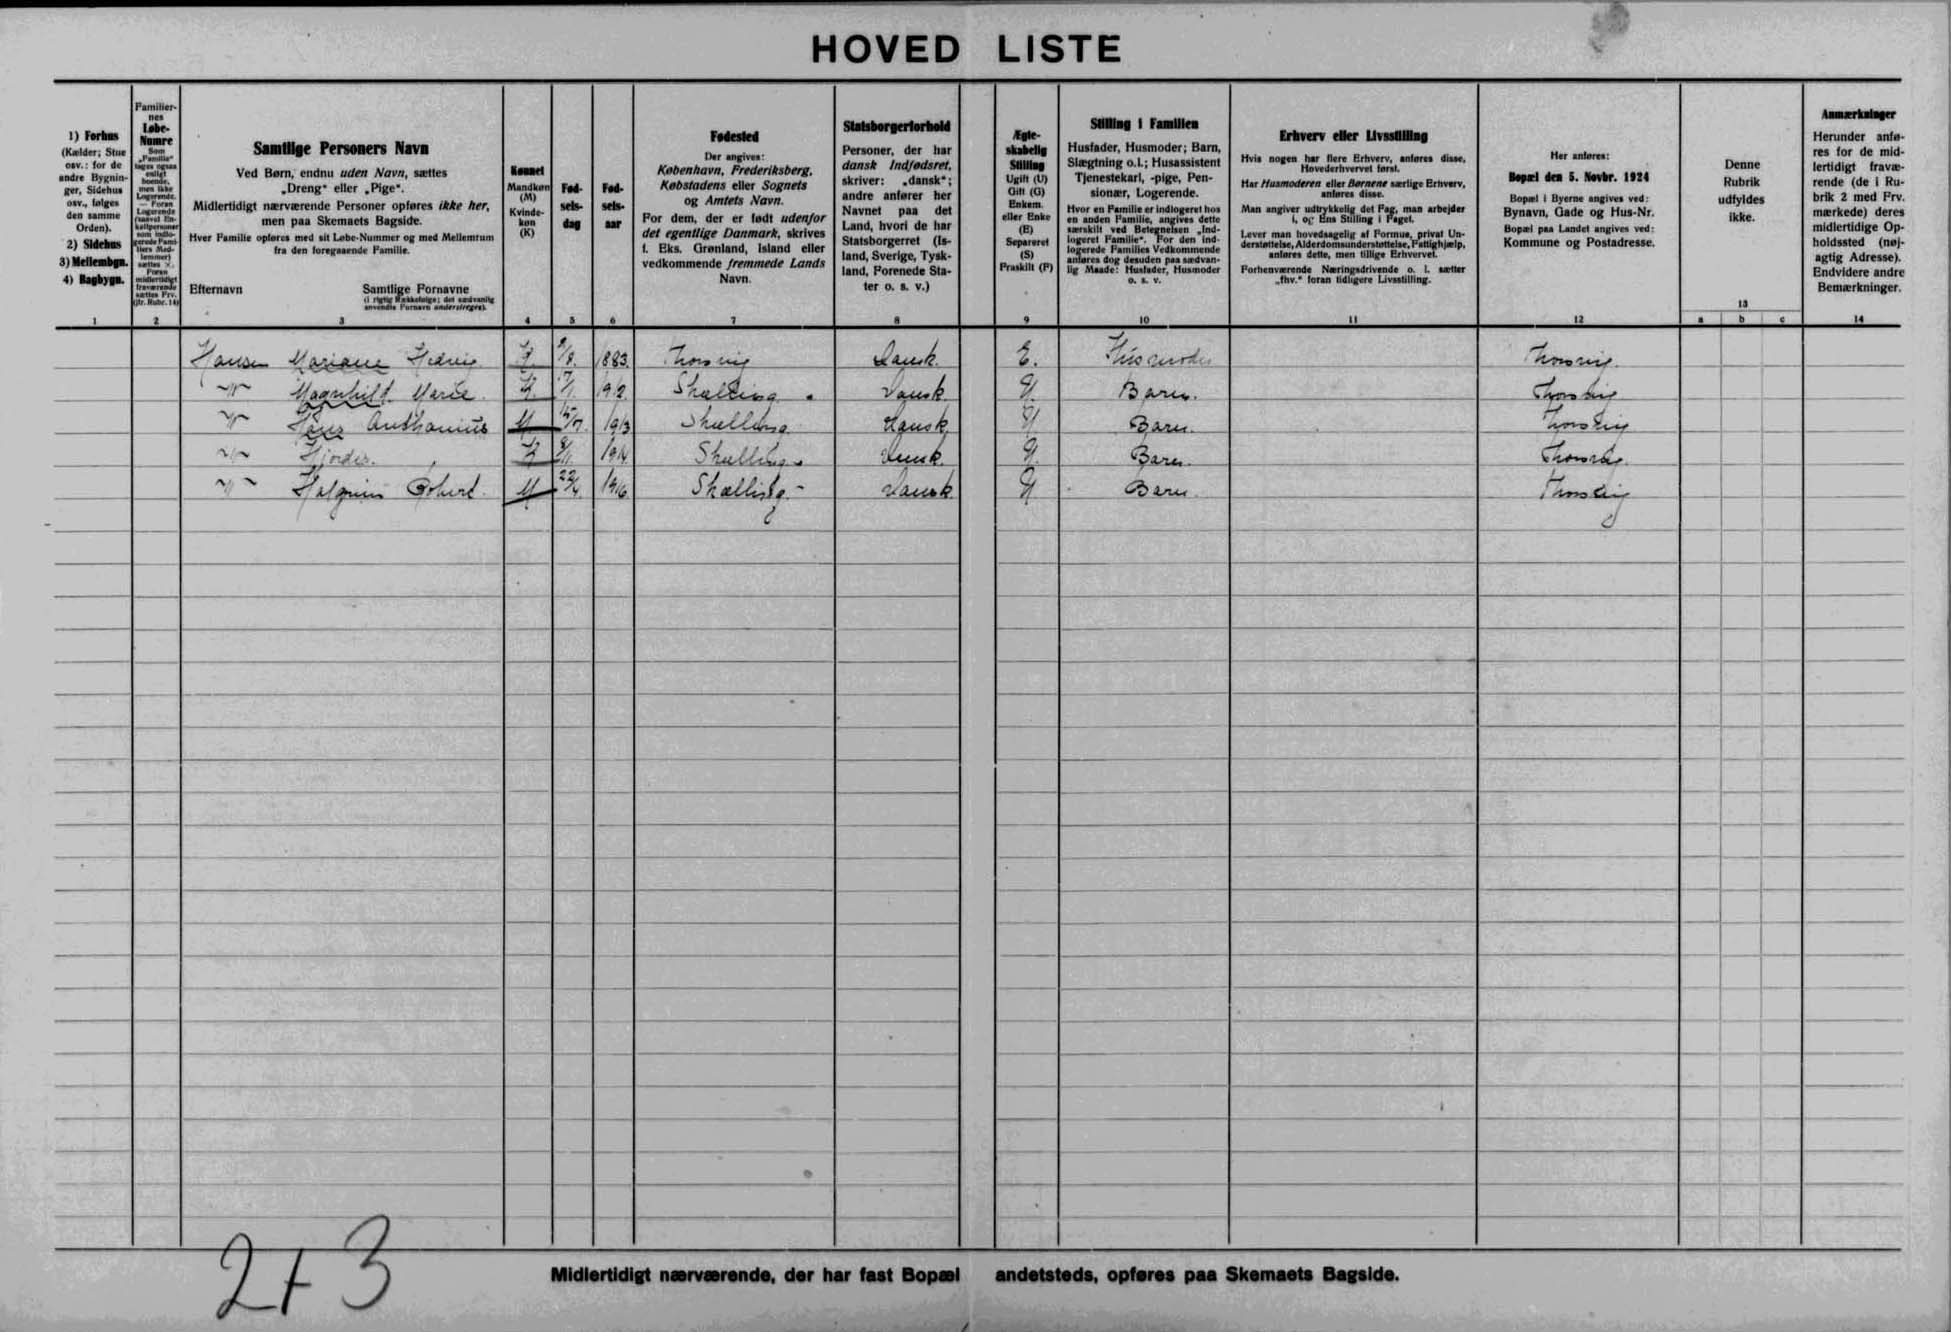 HOVED LISTE
1) Forhus
(Kælder; Stue
osv.: for de
andre Bygnin-
ger, Sidehus
osv., følges
den samme
Orden).
2) Sidehus
3) Mellembgn.
4) Bagbygn.
1
Familier-
nes
Løbe-
Numre
Som
„Familie"
tages ogsaa
enligt
boende,
men ikke
Logerende.
— Foran
Logerende
(saavel En-
keltpersoner
som indlo-
gerede Fami-
liers Med-
lemmer)
sættes ×.
Foran
midlertidigt
fraværende
sættes Frv.
(jfr. Rubr. 14)
2
Samtlige Personers Navn
Ved Børn, endnu uden Navn, sættes
„Dreng" eller „Pige".
Midlertidigt nærværende Personer opføres ikke her,
men paa Skemaets Bagside.
Hver Familie opføres med sit Løbe-Nummer og med Mellemrum
fra den foregaaende Familie.
Efternavn Samtlige Fornavne
(i rigtig Rækkefølge; det sædvanlig
anvendte Fornavn understreges).
3
Kønnet
Mandkøn
(M)
Kvinde-
køn
(K)
4
Fød-
sels-
dag
5
Fød-
sels-
aar
6
Fødested
Der angives:
København, Frederiksberg,
Købstadens eller Sognets
og Amtets Navn.
For dem, der er født udenfor
det egentlige Danmark, skrives
f. Eks. Grønland, Island eller
vedkommende fremmede Lands
Navn.
7
Statsborgerforhold
Personer, der har
dansk Indfødsret,
skriver: „dansk";
andre anfører her
Navnet paa det
Land, hvori de har
Statsborgerret (Is-
land, Sverige, Tysk-
land, Forenede Sta-
ter o. s. v.)
8
Ægte-
skabelig
Stilling
Ugift (U)
Gift (G)
Enkem.
eller Enke
(E)
Separeret
(S)
Fraskilt (F)
9
Stilling i Familien
Husfader, Husmoder; Barn,
Slægtning o.l.; Husassistent
Tjenestekarl, -pige, Pen-
sionær, Logerende.
Hvor en Familie er indlogeret hos
en anden Familie, angives dette
særskilt ved Betegnelsen „Ind-
logeret Familie". For den ind-
logerede Families Vedkommende
anføres dog desuden paa sædvan-
lig Maade: Husfader, Husmoder
o. s. v.
10
Erhverv eller Livsstilling
Hvis nogen har flere Erhverv, anføres disse,
Hovederhvervet først.
Har Husmoderen eller Børnene særlige Erhverv,
anføres disse.
Man angiver udtrykkelig det Fag, man arbejder
i, og Ens Stilling i Faget.
Lever man hovedsagelig af Formue, privat Un-
derstøttelse, Alderdomsunderstøttelse, Fattighjælp,
anføres dette, men tillige Erhvervet.
Forhenværende Næringsdrivende o. l. sætter
„fhv." foran tidligere Livsstilling.
11
Her anføres:
Bopæl den 5. Novbr. 1924
Bopæl i Byerne angives ved:
Bynavn, Gade og Hus-Nr.
Bopæl paa Landet angives ved:
Kommune og Postadresse.
12
Denne
Rubrik
udfyldes
ikke.
13
a b c
Anmærkninger
Herunder anfø-
res for de mid-
lertidigt fravæ-
rende (de i Ru-
brik 2 med Frv.
mærkede) deres
midlertidige Op-
holdssted (nøj-
agtig Adresse).
Endvidere andre
Bemærkninger.
14
Hansen Mariane Hedvig K 1883 Thorsvig Dansk. E. Husmoder Thorsvig.
-"- Magnhild Marie. K. 1912. Skælling. Dansk. U Barn. Thorsvig
-"- Hans Anthonius M 15/7. 1913 Skælling. Dansk U Barn. Thorsvig
-"- Hjørdis. K 1914 Skælling. Dansk. U. Barn. Thorsvig.
-"- Halgrim Robert. M 22/4 1916 Skælling. Dansk U Barn. Thorsvig
2 + 3
Midlertidigt nærværende, der har fast Bopæl andetsteds, opføres paa Skemaets Bagside.